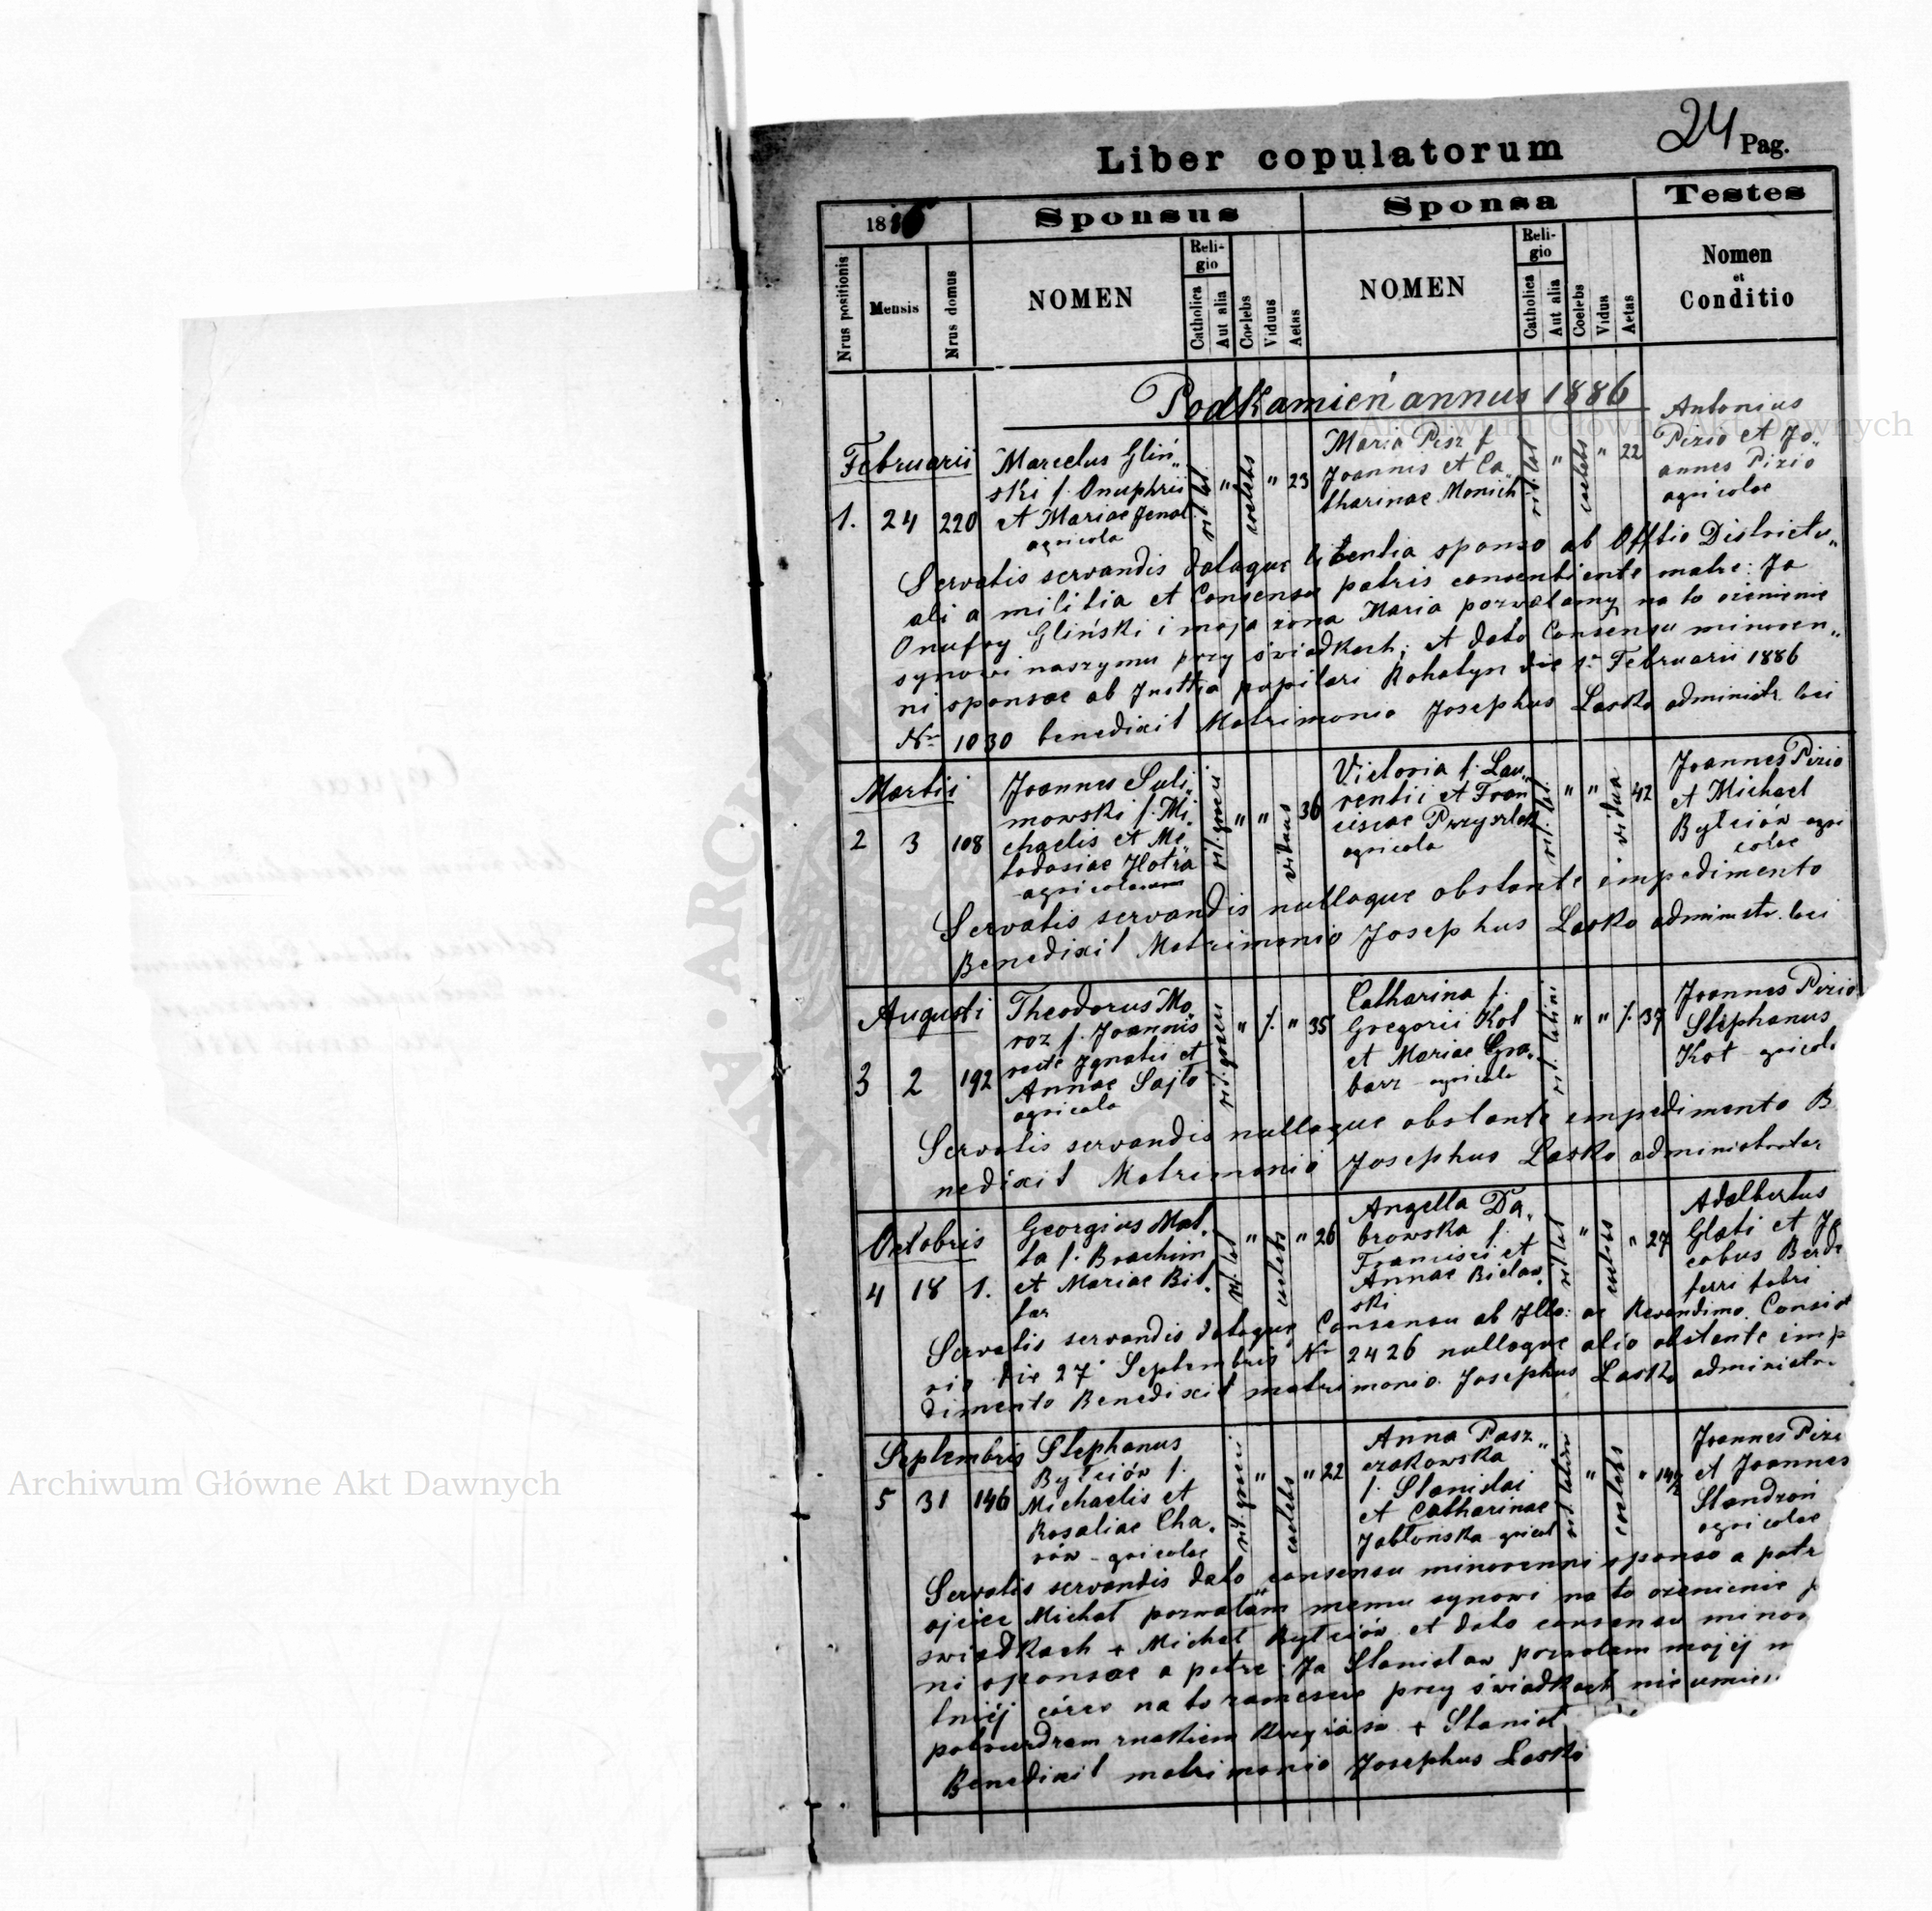 24 Pag.
Liber copulatorum
1886
Sponsus
Sponsa
Testes
Nrus positionis
Mensis
Nrus domus
NOMEN
Religio
Catholica
Aut alia
Coelebs
Viduus
Aetas
NOMEN
Religio
Catholica
Aut alia
Coelebs
Vidua
Aetas
Nomen
et
Conditio
Podkamień annus 1886
Februarii
1. 24 220
Marcelus Gliń„
ski f. Onuphrii
et Mariae Jenal
agricola
rit lat " coelebs " 23
Maria Pisz f.
Joannis et Ca„
tharinae Monich
rit. lat " coelebs " 22
Antonius
Pizio et Jo„
annes Pizio
agricolae
Servatis servandis dataque licentia sponso ab Offtio Districtu„
ali a militia et Consensu patris consentiente matre: Ja
Onufry Gliński i moja żona Maria pozwalamy na to ożenienie
synowi naszymu przy świadkach; et dato Consensu minoren„
ni sponsae ab Justtia pupilari Rohatyn die 1. Februarii 1886
Nr 1030 benedixit Matrimonio Josephus Lasko administr. loci
Martii
2 3 108
Joannes Suli„
mowski f. Mi„
chaelis et Me„
todosiae Hotra
agricolarum
rit. graeci " " viduus 36
Victoria f. Lau„
rentii et Fran„
ciscae Przyszlak
agricola
rit. lat. " " vidua 42
Joannes Pizio
et Michael
Bylciów agri
colae
Servatis servandis nulloque obstante impedimento
Benedixit Matrimonio Josephus Lasko administr. loci
Augusti
3 2 192
Theodorus Mo„
roz f. Joannis
recte Ignatii et
Annae Sajło
agricola
rit. graeci " /. " 35
Catharina f.
Gregorii Kot
et Mariae Gra„
barz agricola
rit. latini " " /. 37
Joannes Pizio
Stephanus
Kot agricol
Servatis servandis nulloque obstante impedimento B
nedixit Matrimonio Josephus Lasko administrator
Octobris
4 18 1.
Georgius Mal„
ta f. Boachim
et Mariae Bil„
far
rit. lat " coelebs " 26
Angella Da„
browska f.
Francisci et
Annae Bielaw„
ski
rit lat " coelebs " 27
Adalbertus
Glati et Ja
cobus Berd
ferri fabri
Servatis servandis datoque Consensu ab Illo: ac Revendimo. Consist
rio die 27 Septembris Nr 2426 nulloque alio obstante imp
dimento Benedixit matrimonio. Josephus Lasko administr.
Septembris
5 31 146
Stephanus
Bylciów f.
Michaelis et
Rosaliae Cha„
rów - agricolae
rit. graeci " coelebs " 22
Anna Pasz„
czakowska
f. Stanislai
et Catharinae
Jabłońska agricol
rit. latini " coelebs " 14½
Joannes Pizi
et Joannes
Slandroń
agricolae
Servatis servandis dato consensu minorenni sponso a patr
ojciec Michał pozwalam memu synowi na to ożenienie p
świadkach + Michał Bylciów et dato consensu minor
ni sponsae a patre: Ja Stanisław pozwalam mojéj
tniéj córce na to zamęscie przy świadkach nie umie
potwierdzam znakiem Krzyża sw + Stanisł
Benedixit matrimonio Josephus Lasko
Archiwum Główne Akt Dawnych
Archiwum Główne Akt Dawnych